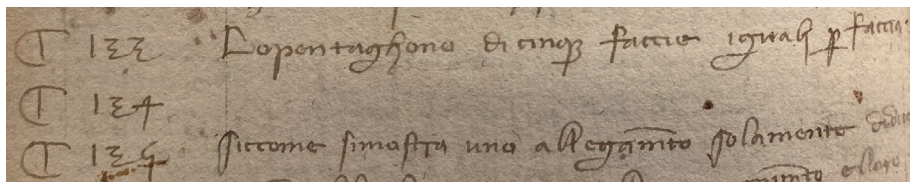 ¶ 133 Lo pentaghono di cinqꝫ faccie iguali ꝑ faccia
¶ 134
¶ 135 Siccome simostra uno allegam̅to solamente